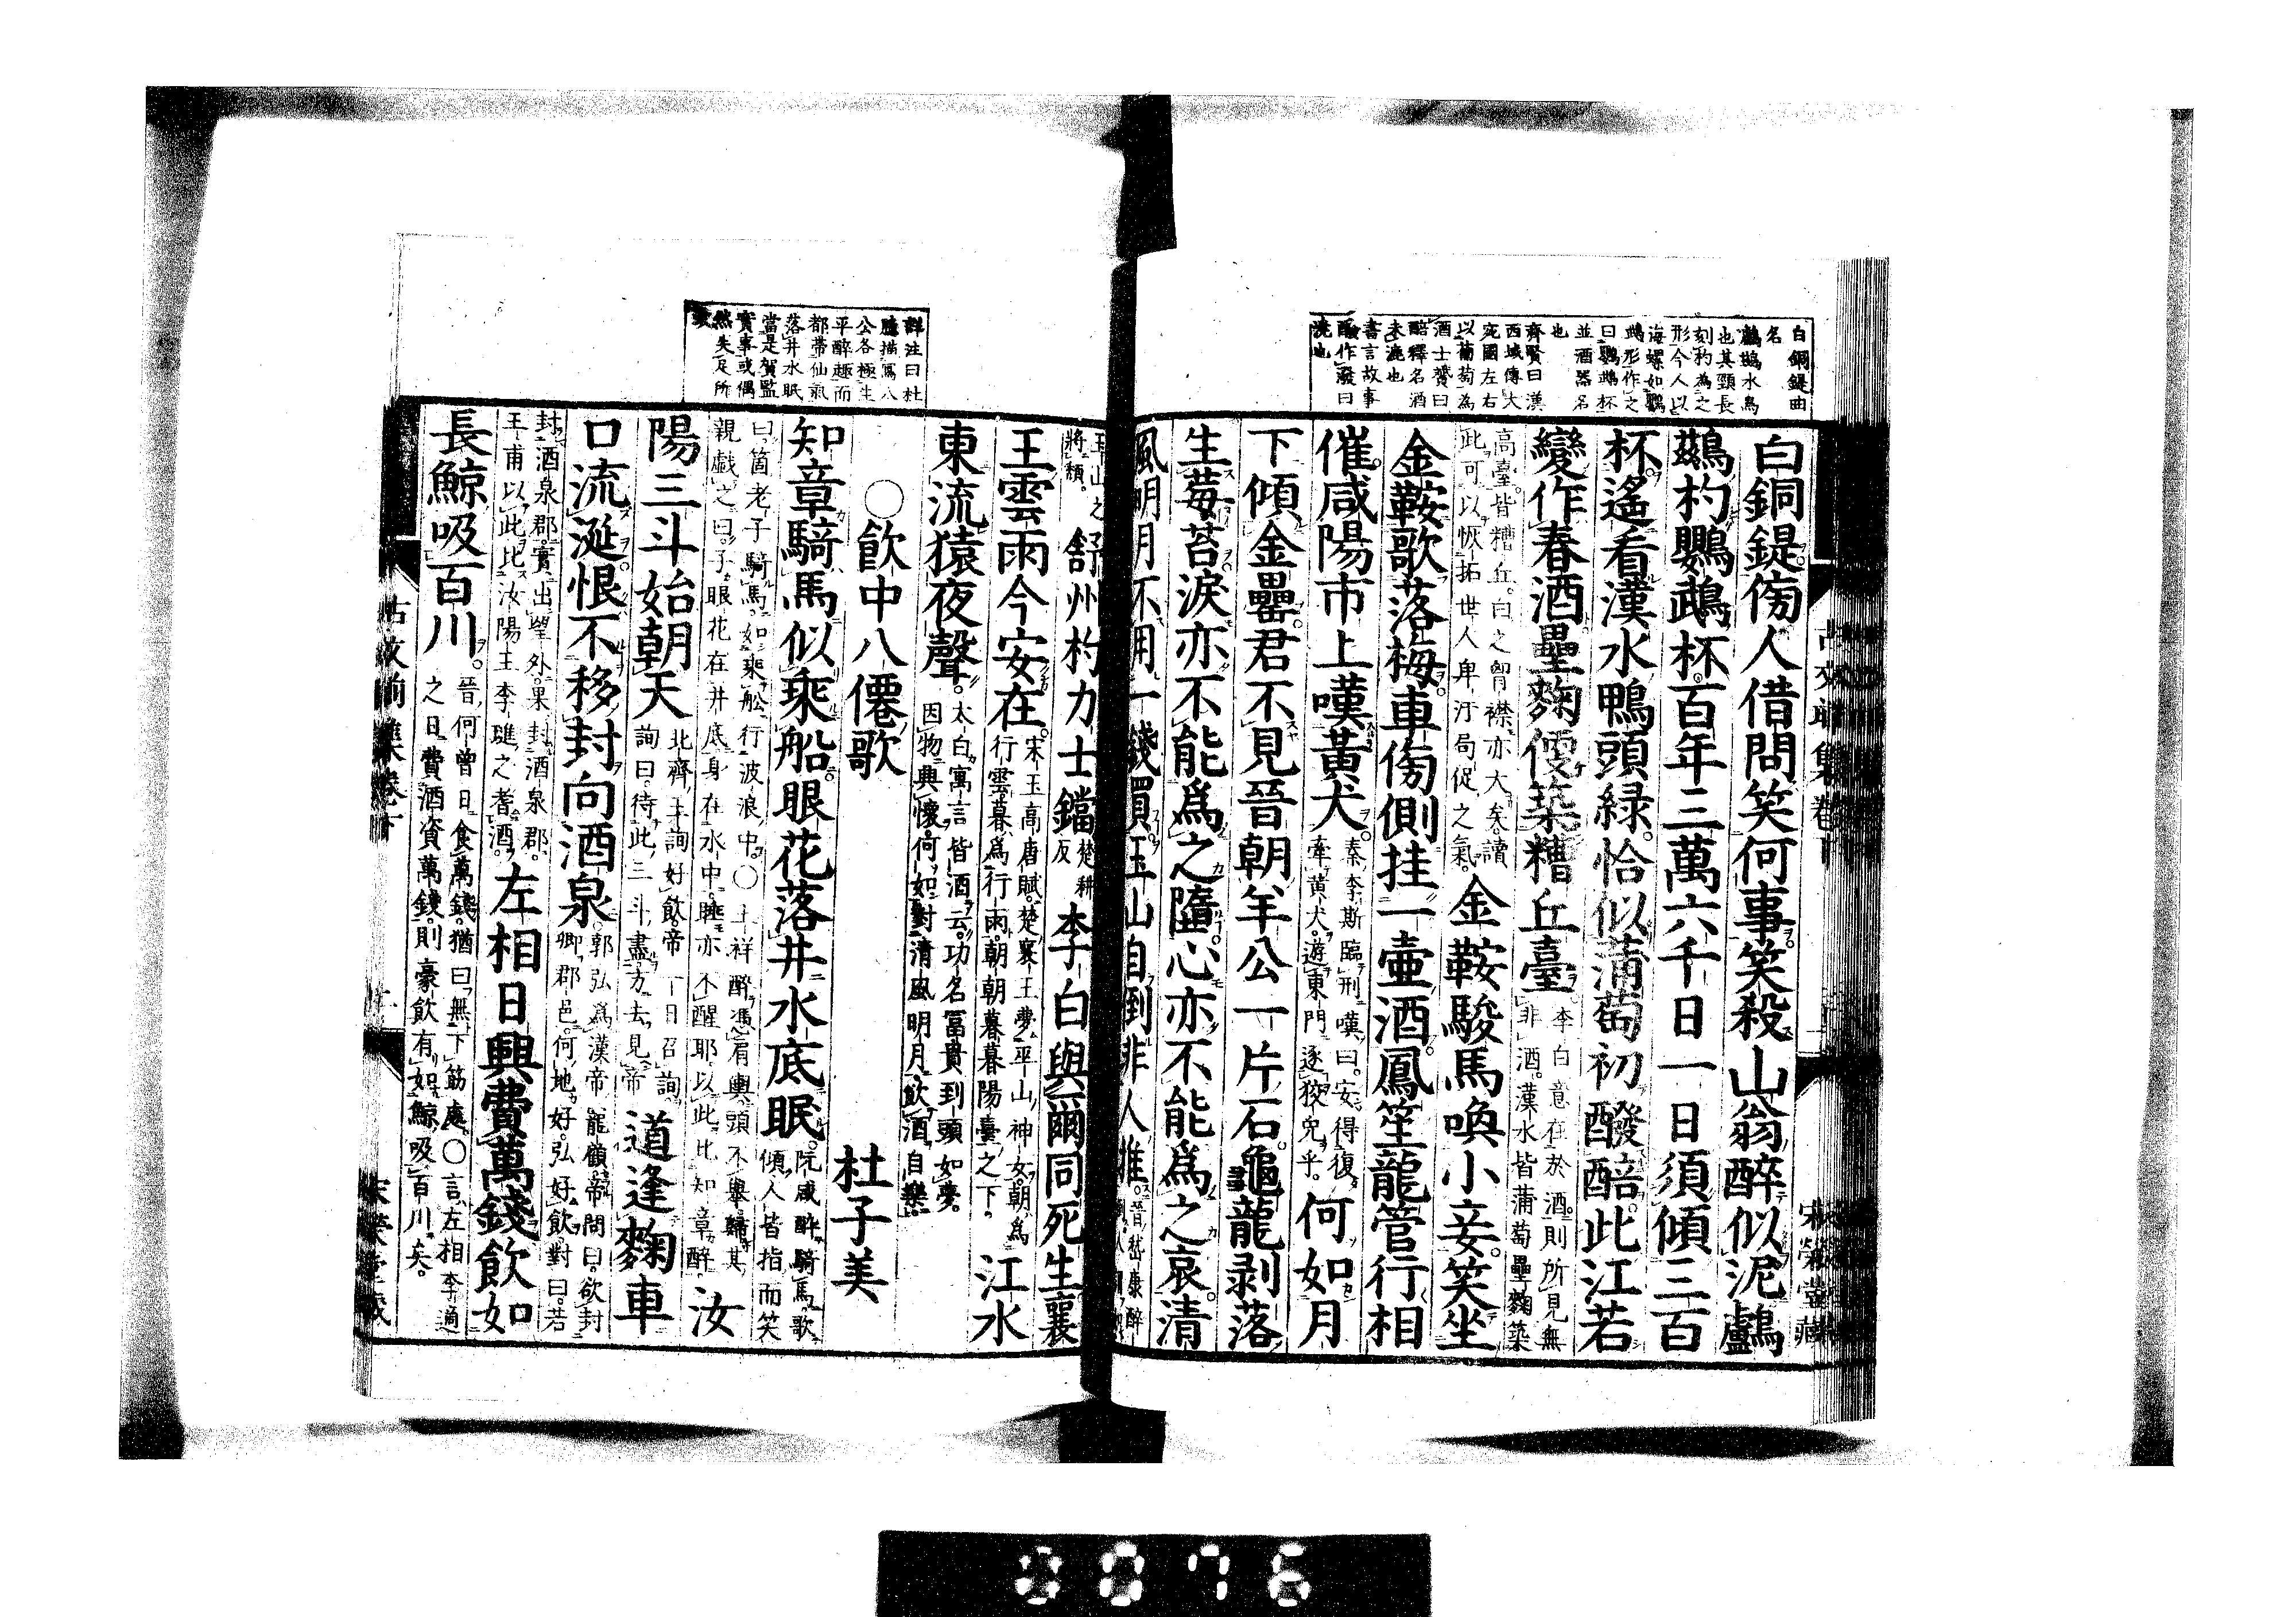 白銅鍉曲
名
鸕鷀水鳥
也其頸長
刻杓為之
形今人以
海螺如鸚
鵡形作之
曰鸚鵡杯
並酒器名
也
齊賢曰漢
西域傳大
宛國左右
以葡萄為
酒士贇曰
醅釋名酒
未漉也
書言故事
醱作潑曰
洗也
白銅鍉傍人借問笑何事笑殺山翁醉似泥鸕
鷀杓鸚鵡杯百年三萬六千日一日須傾三百
杯遙看漢水鴨頭緑恰似蒲萄初醱醅此江若
變作春酒壘麴便築糟丘臺
李白意在於酒則所見無
非酒漢水皆蒲萄壘麴築
高臺皆糟丘白之胷襟亦大矣讀
此可以恢拓世人卑汙局促之氣
金鞍駿馬喚小妾笑坐
金鞍歌落梅車傍側挂一壷酒鳳笙龍管行相
催咸陽市上嘆黃犬
秦李斯臨刑嘆曰安得復
牽黃犬遊東門逐狡兎乎
何如月
下傾金罍君不見晉朝羊公一片石龜龍剥落
生莓苔淚亦不能爲之墮心亦不能爲之哀清
風朗月不用一錢買玉山自倒非人推
晋嵆康醉
玉山之
將頹
舒州杓力士鐺
楚耕
反
李白與爾同死生襄
王雲雨今安在
宋玉高唐賦楚襄王夢平山神女朝為
行雲暮爲行雨朝朝暮暮陽臺之下
江水
東流猿夜聲
太白寓言皆酒云功名冨貴到頭如夢
因物興懷何如對清風明月飲酒自樂
〇飲中八僊歌
杜子美
知章騎馬似乘船眼花落井水底眠
阮咸醉騎馬歌
傾人皆指而笑
曰箇老子騎馬如乘舩行波浪中〇王祥醉憑肩輿頭不舉歸其
親戯之曰子眼花在井底身在水中睡亦不醒耶以此比知章醉
汝
陽三斗始朝天
北齊王詢好飲帝一日召詢
詢曰待此三斗盡方去見帝
道逢麴車
口流涎恨不移封向酒泉
郭弘爲漢帝寵顧帝問曰欲封
卿郡邑何地好弘好飲對曰若
封酒泉郡實出望外果封酒泉郡
王甫以此比汝陽王李璡之耆酒
左相日興費萬錢飲如
長鯨吸百川
晉何曾日食萬錢猶曰無下筯處〇言左相李適
之日費酒資萬錢則豪飲有如鯨吸百川矣
詳注曰杜
臆描寫八
公各極生
平醉趣而
都帯仙氣
落井水眠
當是賀監
實事或偶
然失足所
致
古文前集卷上
宋榮堂藏
0076